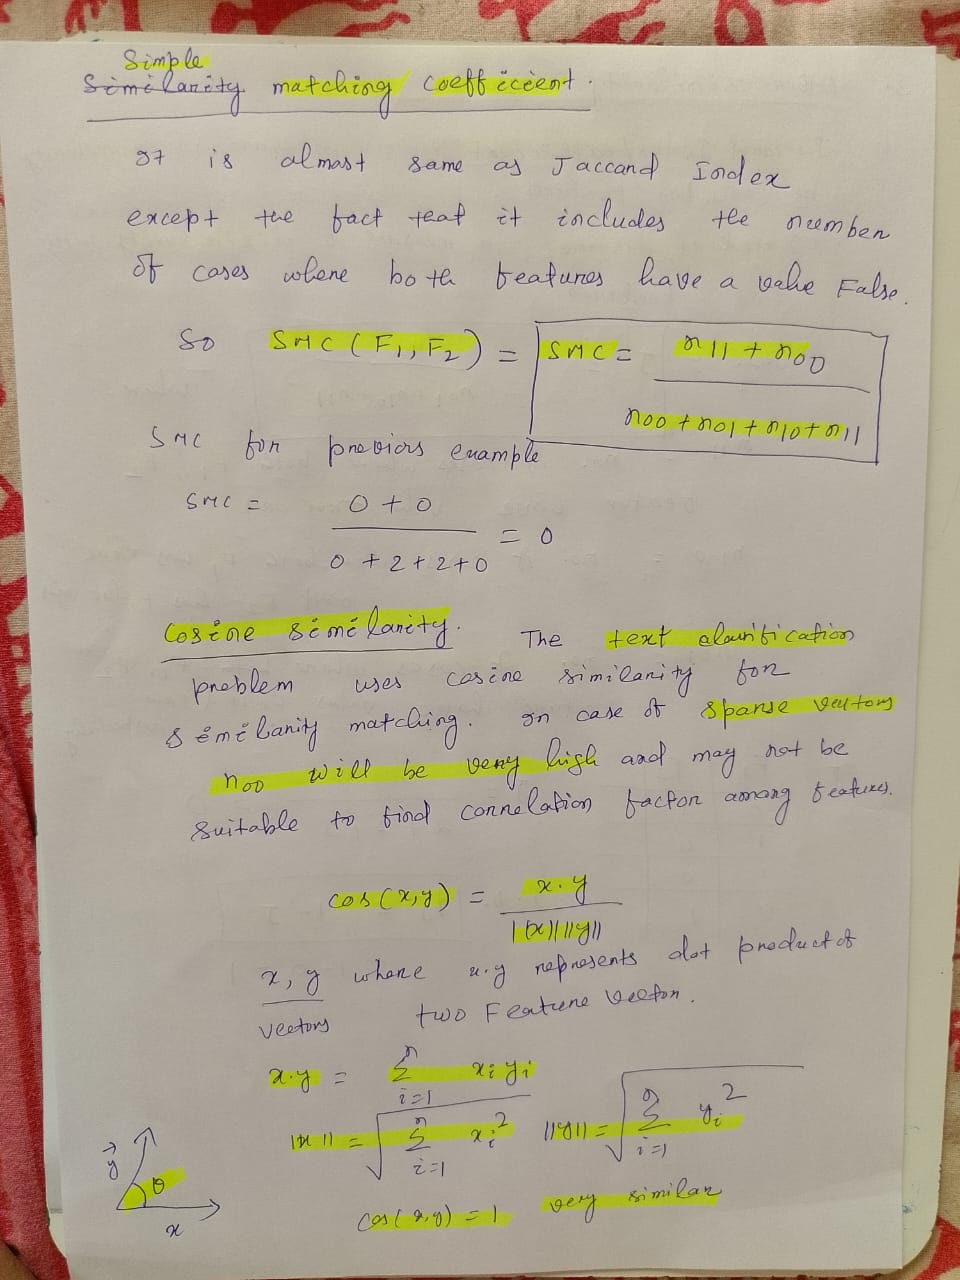 Simple
Similarity matching coefficient.
It is almost same as Jaccard Index
except the fact that it includes the number
of cases where both features have a value False.
So SMC (F1, F2) = SMC = n11 + n00
n00 + n01 + n10 + n11
SMC for previous example
SMC = 0 + 0
0 + 2 + 2 + 0 = 0
Cosine similarity. The text classification
problem uses cosine similarity for
similarity matching. In case of sparse vectors
n00 will be very high and may not be
suitable to find correlation factor among features.
cos(x,y) = x.y
||x|| ||y||
x, y where x.y represents dot product of
vectors two Feature vector.
x.y = n Σ i=1 xi yi
||x|| = √ n Σ i=1 xi² ||y|| = √ n Σ i=1 yi²
y θ x
cos(x,y) = 1 very similar